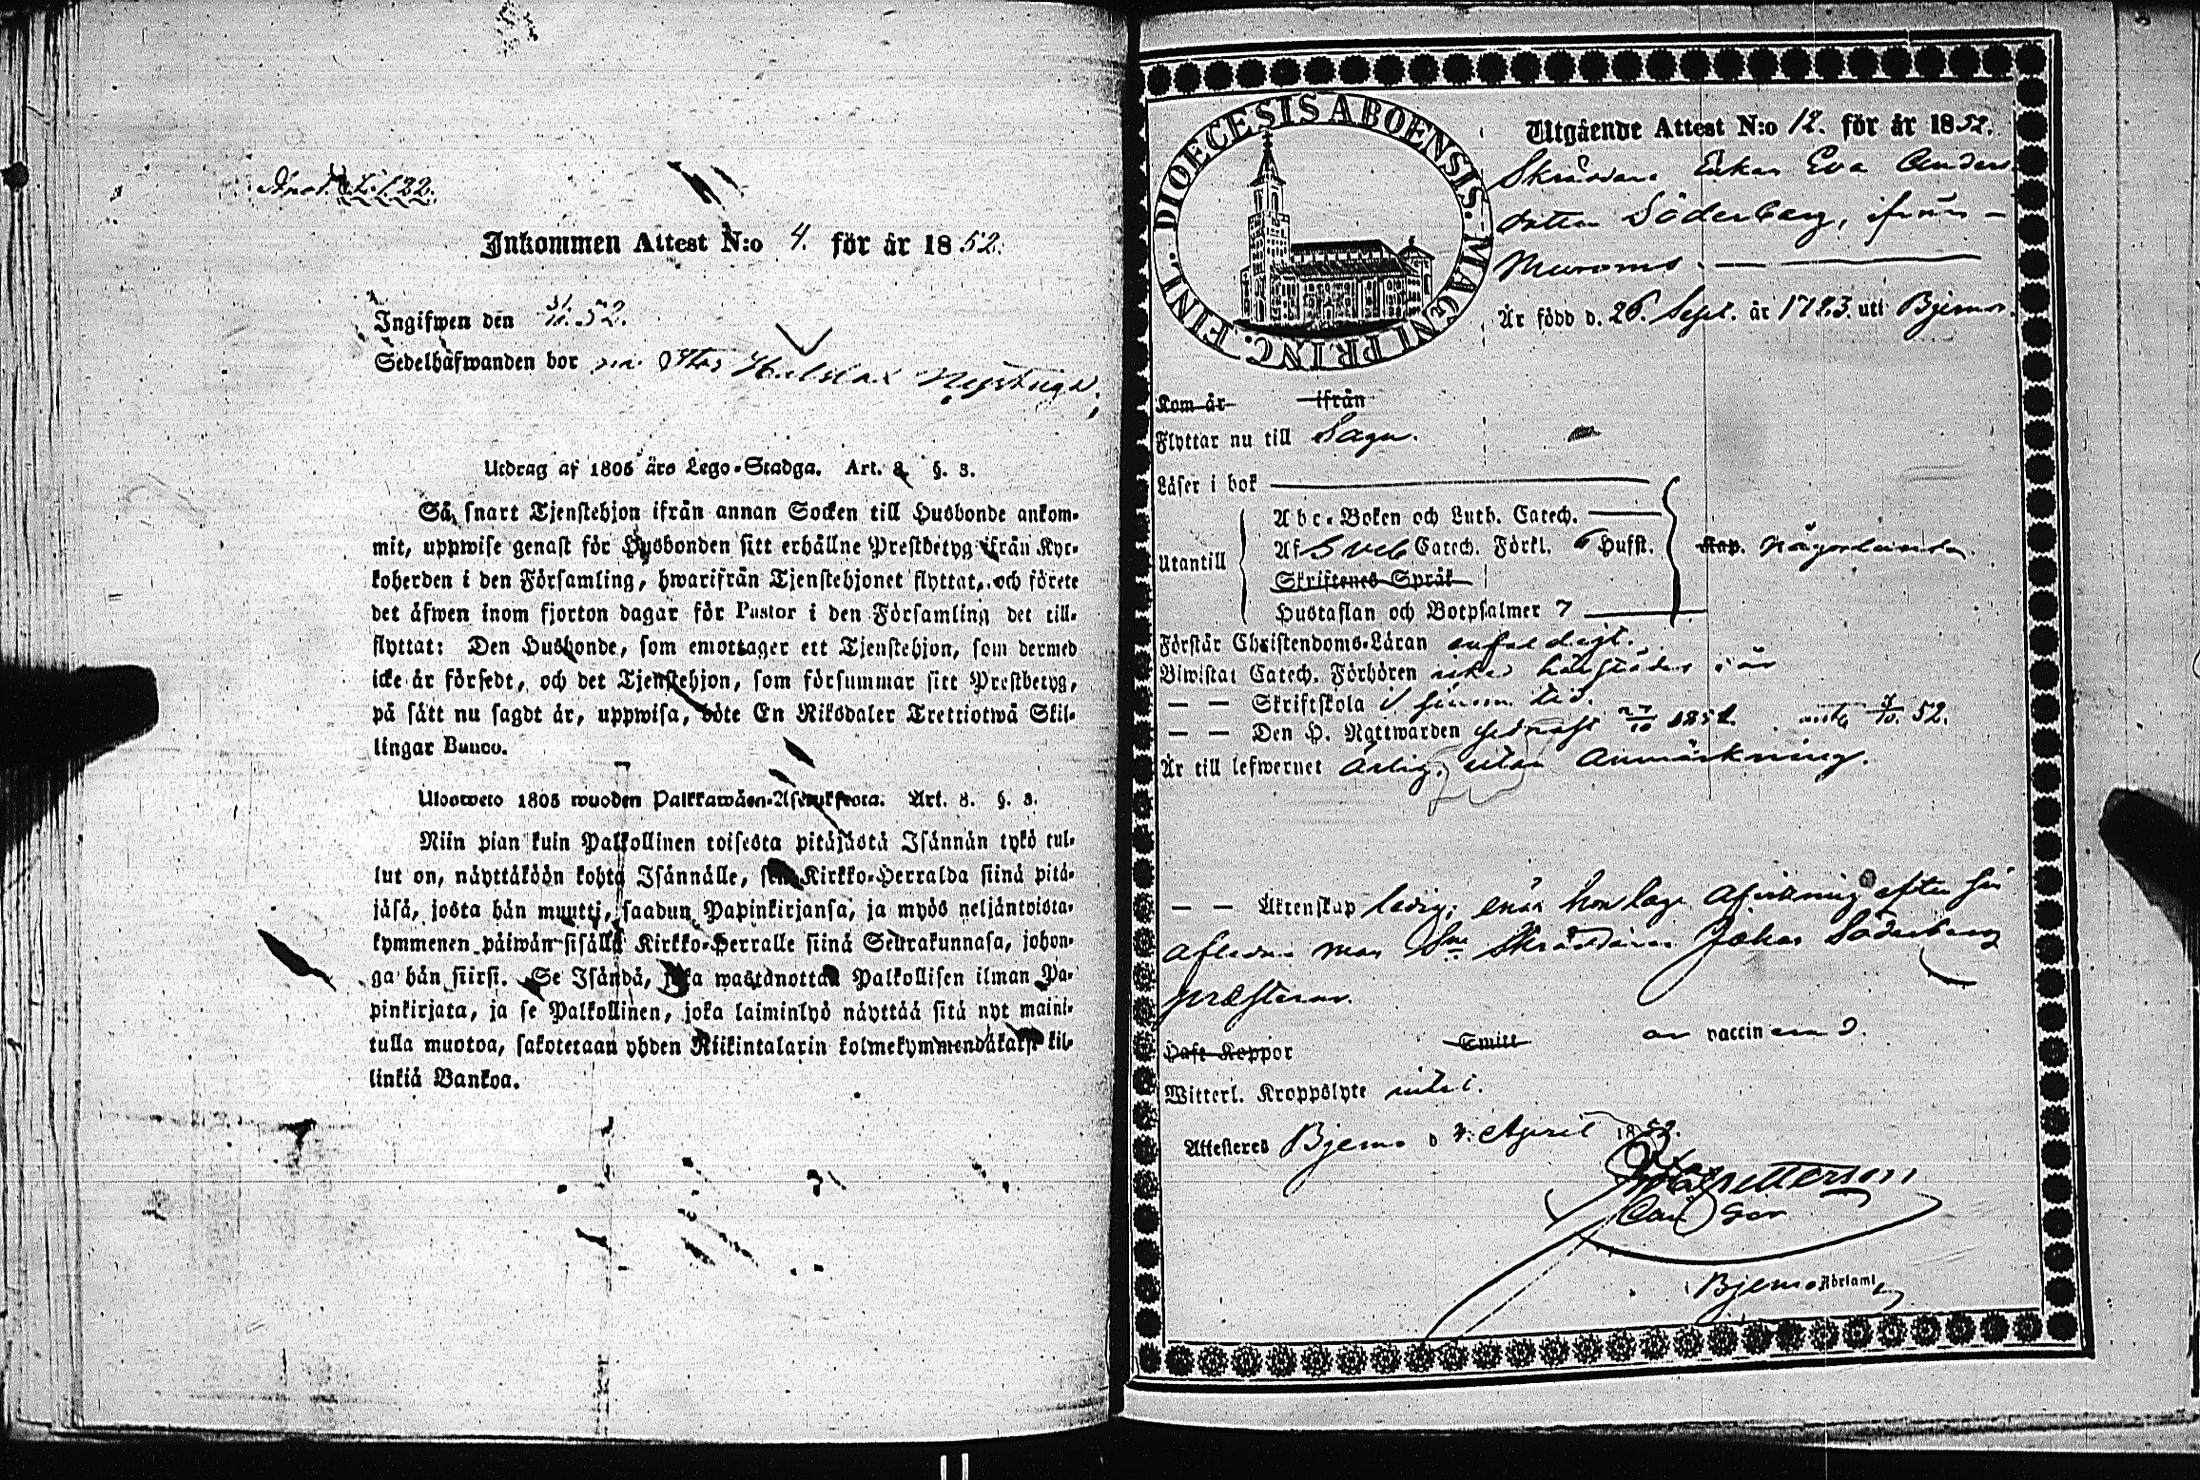 Inkommen Attest N:o 4. för år 1852.
Ingifwen den 52.
Sedelhafwanden bor
Utdrag af 1805 års Lego-Stadga. Art. 8. §. 3.
Så snart Tjenstehjon ifrån annan Socken till Husbonde ankom-
mit, uppwise genast för Husbonden sitt erhållne Prestbetyg ifrån Kyr-
koherden i den Församling, hwarifrån Tjenstehjonet flyttat, och förete
det äfwen inom fjorton dagar för Pastor i den Församling det till-
flyttat: Den Husbonde, som emottager ett Tjenstehjon, som dermed
icke är försedt, och det Tjenstehjon, som försummar sitt Prestbetyg,
på sätt nu sagdt är, uppwisa, böte En Riksdaler Trettiotwå Skil-
lingar Banco.
Ulosweto 1805 wuoden Palkkawäen-Asetuksesta. Art. 8. §. 3.
Niin pian kuin Palkollinen toisesta pitäjästä Isännän tykö tul-
lut on, näyttäköön kohta Isännälle, sen Kirkko-Herralda siinä pitä-
jäsä, josta hän muutti, saadun Papinkirjansa, ja myös neljäntoista-
kymmenen päiwän sisällä Kirkko-Herralle siinä Seurakunnasa, johon-
ga hän siirsi. Se Isändä, joka wastanottaa Palkollisen ilman Pa-
pinkirjata, ja se Palkollinen, joka laiminlyö näyttää sitä nyt maini-
tulla muotoa, sakotetaan yhden Riikintalarin kolmekymmendäkaksi kil-
linkiä Bankoa.
DIOECESIS ABOENSIS. MAGNI PRINC. FINL.
Utgående Attest N:o 12. för år 1852.
Skräddare Enkan Eva Anders
dotter Söderberg, ifrån
Är född d. 26 Sept. år 1783. uti Bjerno.
Kom år ifrån
Flyttar nu till Sagu.
Läser i bok
Utantill
Abc-Boken och Luth. Catech.
Af Sveb Catech. Förkl. 6 Hufst.
Någorlunda
Skriftenes Språk
Hustaflan och Botpsalmer 7
Förstår Christendoms-Läran enfaldigt.
Biwistat Catech. Förhören
— — Skriftskola i sinom tid.
— — Den H. Nattwarden sednast 52.
Är till lefwernet ärlig, utan Anmärkning.
— — Äktenskap ledig, enär hon lagl. Afvittring efter sin
aflidne man Skräddaren Johan Söderberg
præsterat.
Haft Koppor Smitt är vaccinerad.
Witterl. Kroppslyte
Attesteres Bjerno d April 1852.
Bjerno